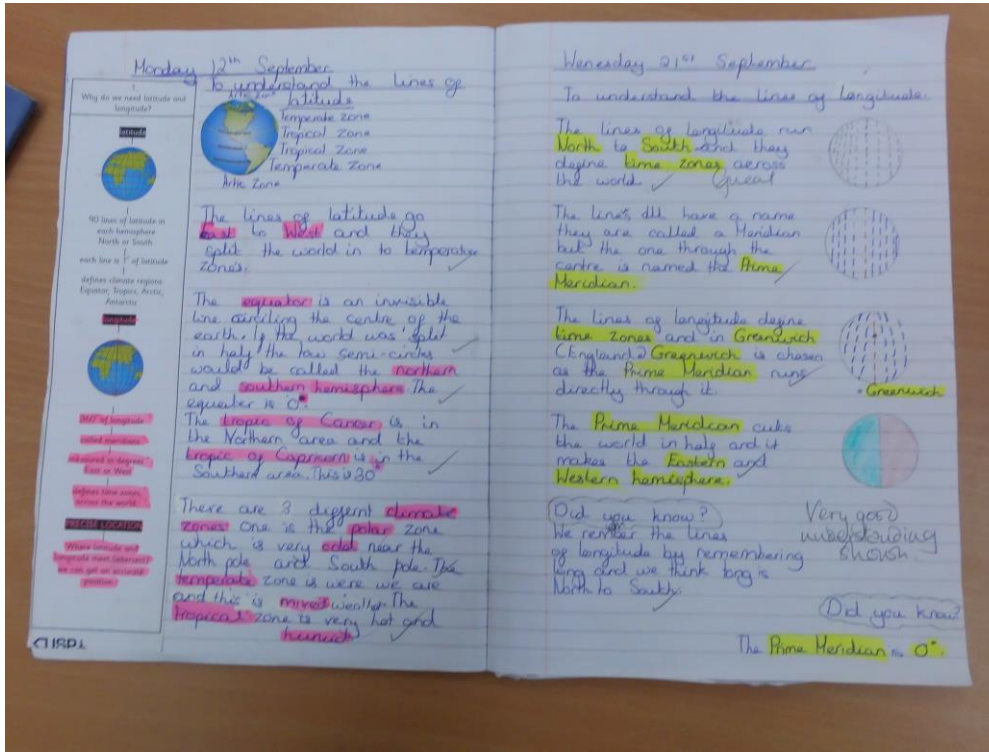 Monday 12th September
To understand the lines of
latitude
Why do we need latitude and
longitude?
latitude
90 lines of latitude in
each hemisphere
North or South
each line is 1° of latitude
defines climate regions
Equator, Tropics, Arctic,
Antarctic
longitude
360° of longitude
called meridians
measured in degrees
East or West
defines time zones
across the world
PRECISE LOCATION
Where latitude and
longitude meet (intersect)
we can get an accurate
position
CUSP
Artic Zone
Temperate Zone
Tropical Zone
Tropical Zone
Temperate Zone
Artic Zone
The lines of latitude go
East to West and they
split the world in to temperature
zones.
The equator is an invisible
line circling the centre of the
earth. If the world was split
in half the tow semi-circles
would be called the northern
and southern hemisphere. The
equater is 0°
The tropic of Cancer is in
the Northern area and the
tropic of Capricorn is in the
Southern area. This is 30°
There are 3 different climatic
zones. One is the polar zone
which is very cold near the
North pole and South pole. The
temperate zone is were we are
and this is mixed weather. The
tropical zone is very hot and
humid
Wenesday 21st September
To understand the lines of longitude.
The lines of longitude run
North to South and they
define time zones across
the world. Great
The lines dll have a name
they are called a Meridian
but the one through the
centre is named the Prime
Meridian.
The lines of longitude define
time zones and in Greenwich
(England) Greenwich is chosen
as the Prime Meridian runs
directly through it.
Greenwich
The Prime Meridian cuts
the world in half and it
makes the Eastern and
Western hemisphere.
Did you know?
We rember the lines
of longitude by remembering
long and we think long is
North to South.
Very good
understanding
shown
Did you know?
The Prime Meridian is 0°.